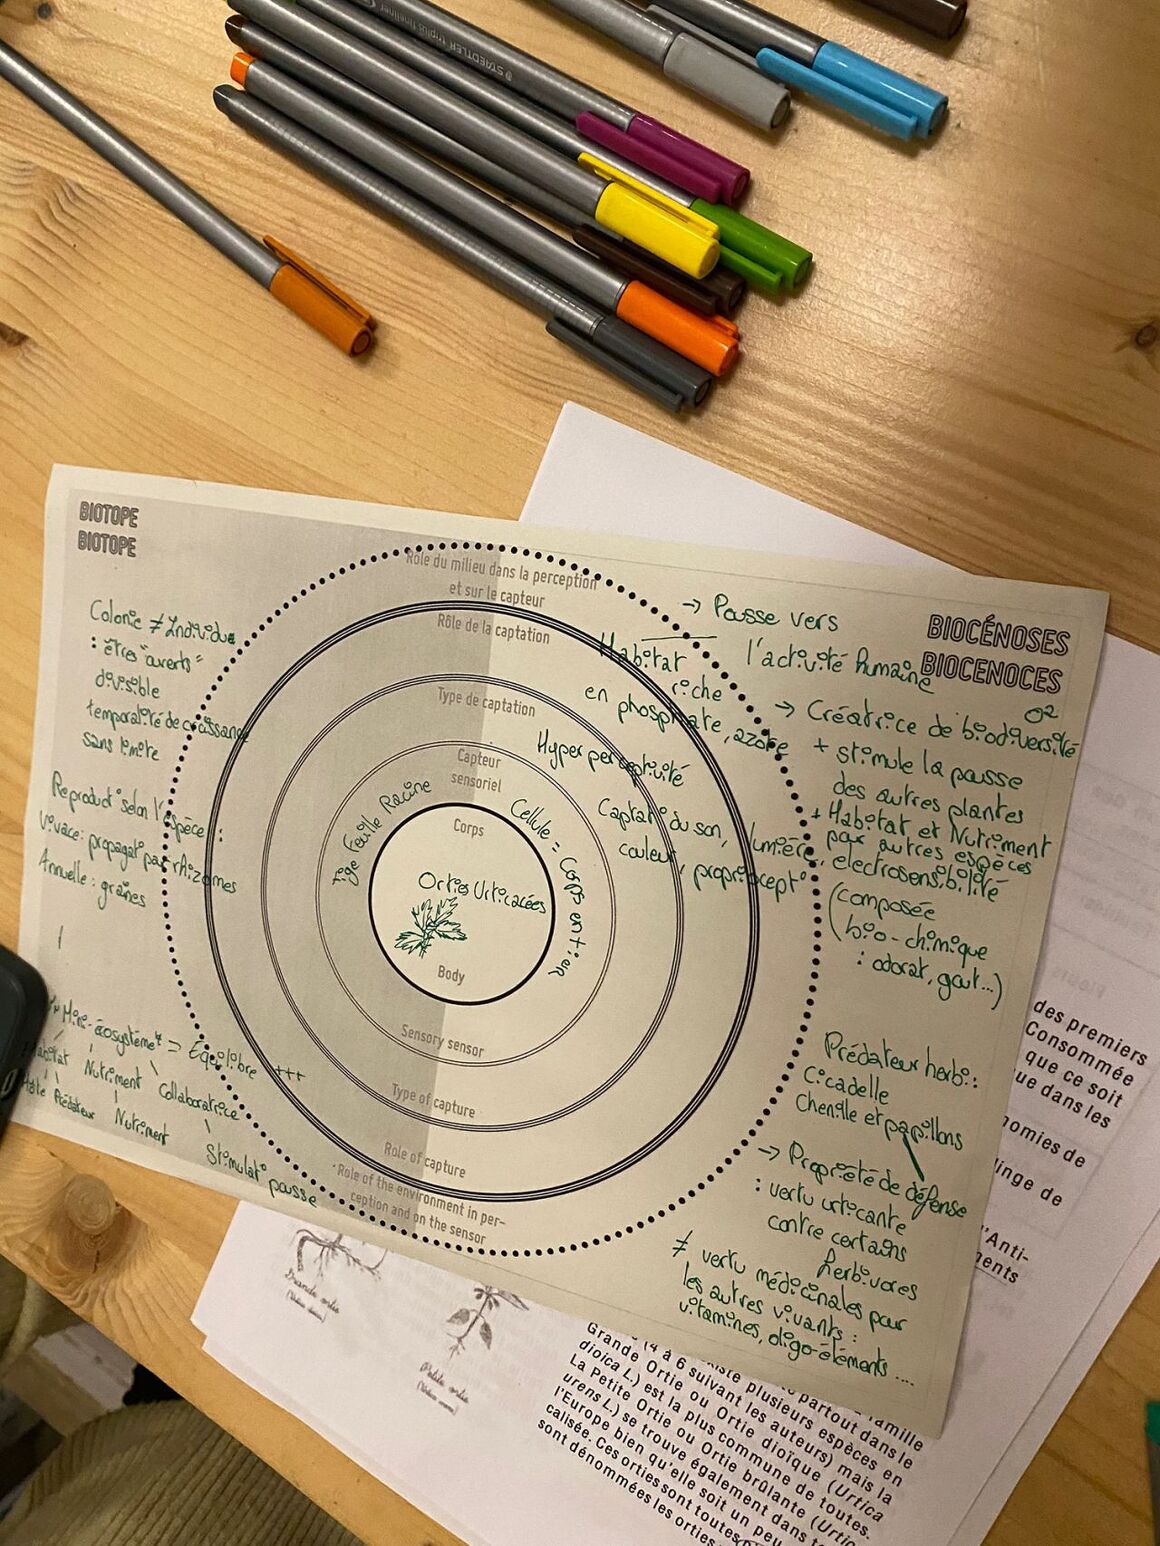 STAEDTLER triplus fineliner
BIOTOPE
BIOTOPE
Colonie ≠ Individu
: êtres "ouverts"
divisible
temporalité de croissance
sans limite
Reproduct° selon l'espèce :
Vivace : propagat° par rhizomes
Annuelle : graines
Mini-écosystème" => Equilibre +++
Habitat Nutriment Collaboratrice
Prédateur Nutriment
Stimulat° pousse
Rôle du milieu dans la perception
et sur le capteur
Rôle de la captation
Type de captation
Capteur
sensoriel
Corps
Tige Feuille Racine
Cellule = Corps entier
Ortie Urticacées
Body
Sensory sensor
Type of capture
Role of capture
Role of the environment in per-
ception and on the sensor
Habitat
riche
en phosphate, azote
Hyperperceptivité
Captat° du son, lumière, électrosensibilité
couleur, propriocept°
(composée
bio-chimique
: odorat, gout...)
BIOCÉNOSES
BIOCENOCES
-> Pousse vers
l'activité humaine
O2
-> Créatrice de biodiversité
+ stimule la pousse
des autres plantes
+ Habitat et Nutriment
pour autres espèces
Prédateur herbi. :
Cicadelle
Chenille et papillons
-> Propriété de défense
: vertu urticante
contre certains
herbivores
≠ vertu médicinales pour
les autres vivants :
vitamines, oligo-éléments ....
des premiers
Consommée
que ce soit
ue dans les
nomies de
linge de
l'Anti-
ments
Grande ortie
Petite ortie
famille
(4 à 6 suivant les auteurs) mais la
Grande Ortie ou Ortie dioïque (Urtica
dioica L.) est la plus commune de toutes.
La Petite Ortie ou Ortie brûlante (Urtic
urens L.) se trouve également dans
l'Europe bien qu'elle soit un peu
calisée. Ces orties sont toutes
sont dénommées les orties